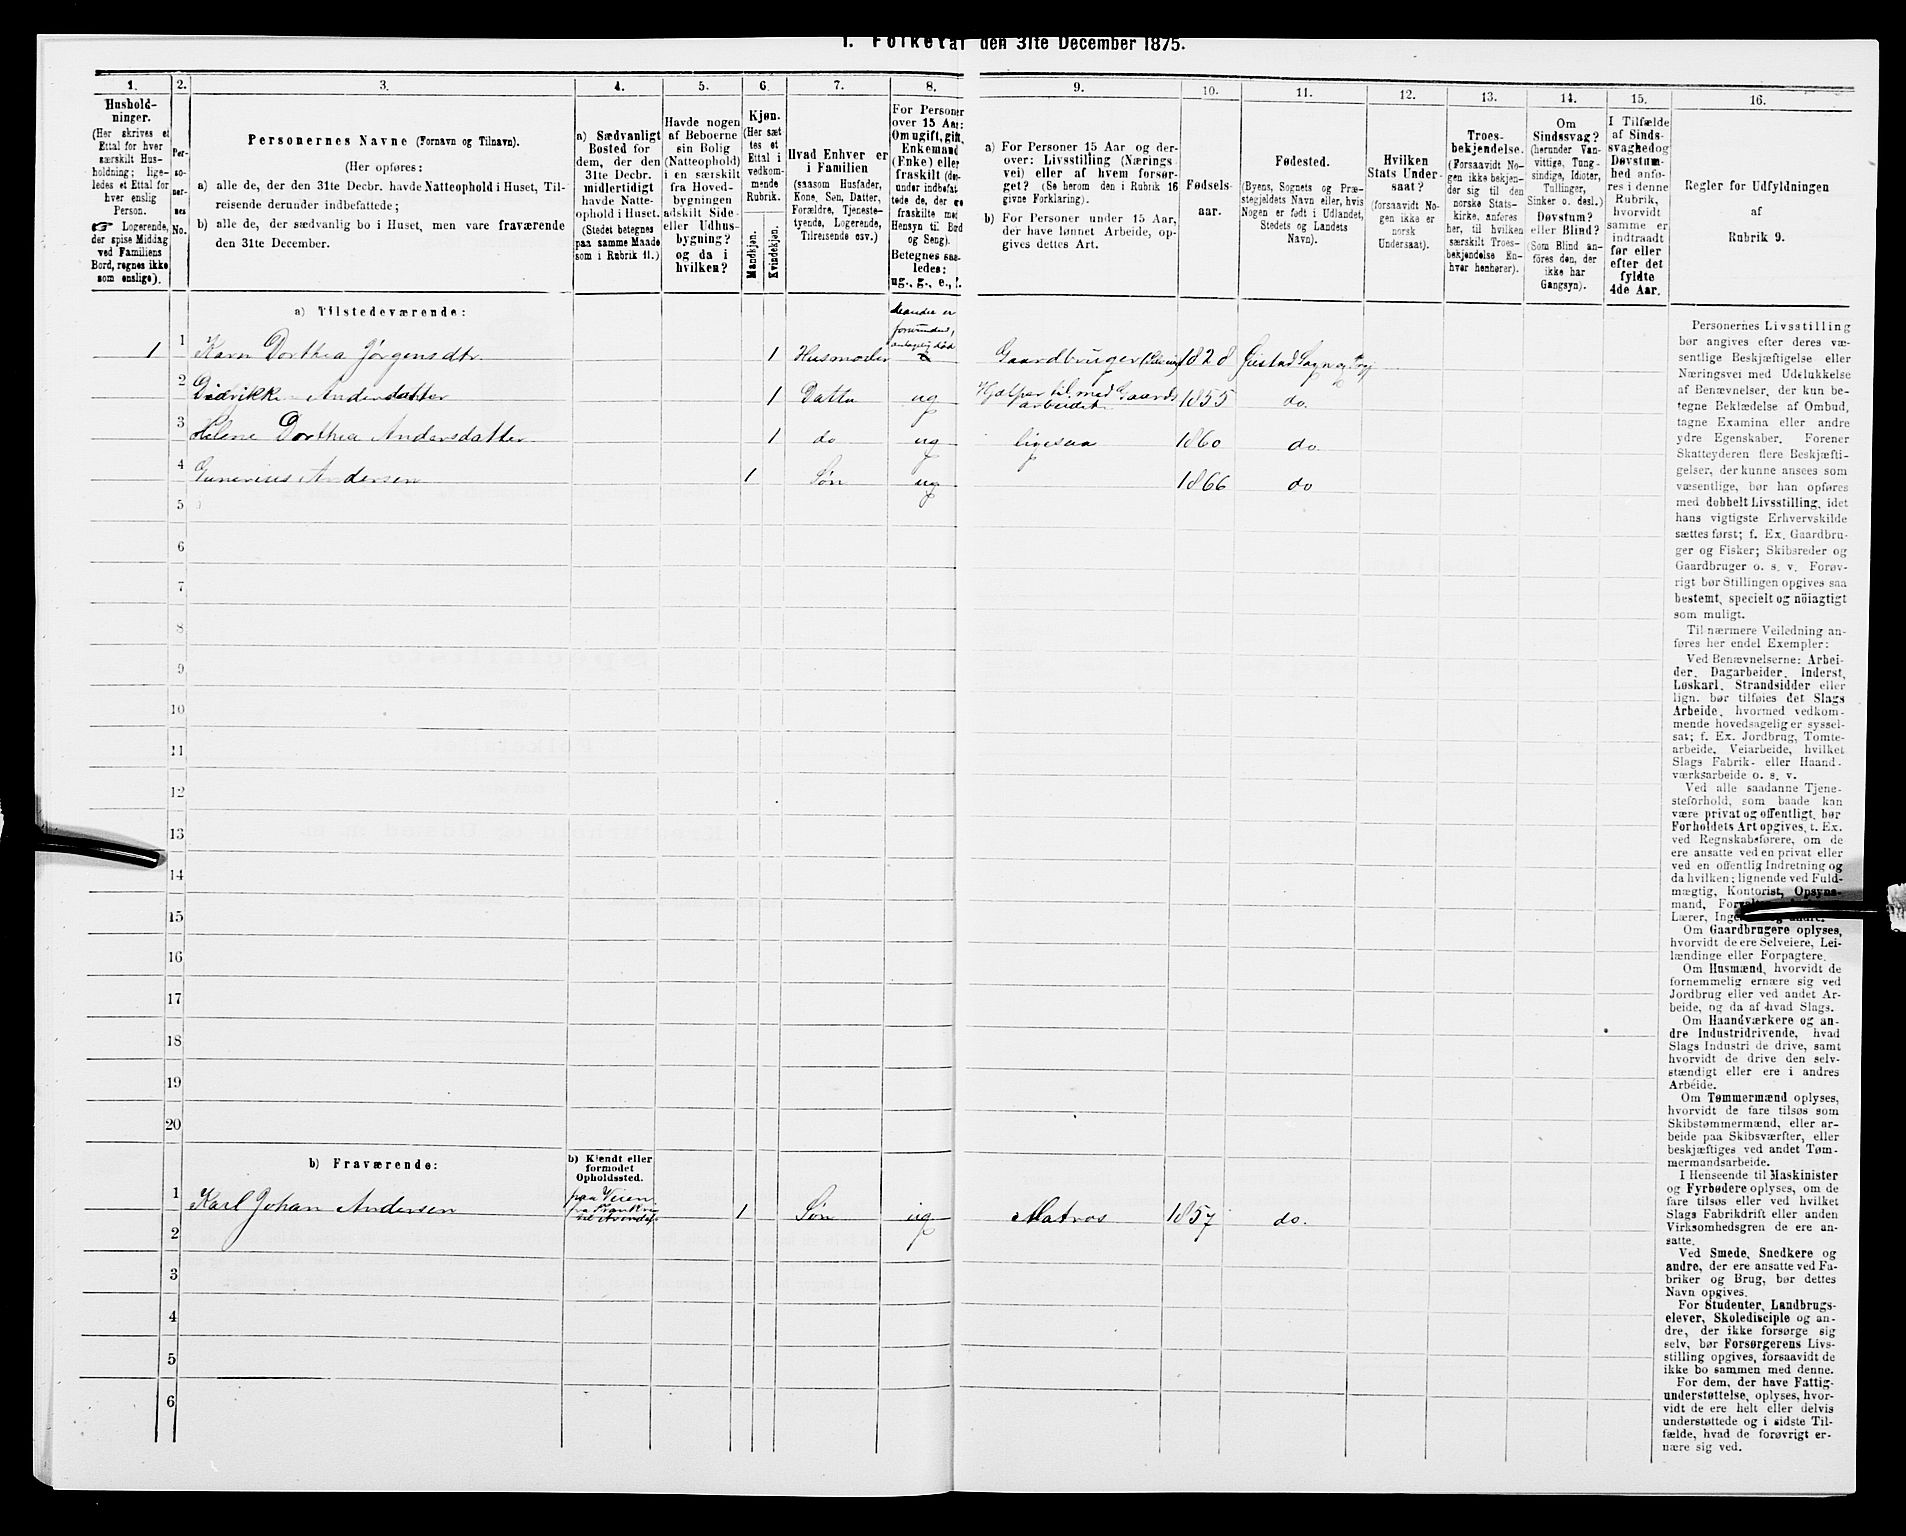 1. Folketal den 31te December 1875.
1.
Hushold-
ninger.
(Her skrives et
Ettal for hver
særskilt Hus-
holdning; lige-
ledes et Ettal for
hver enslig
Person.
Logerende,
der spise Middag
ved Familiens
Bord, regnes ikke
som enslige).
2.
Per-
so-
ner-
nes
No.
3.
Personernes Navne (Fornavn og Tilnavn).
(Her opføres:
a) alle de, der den 31te Decbr. havde Natteophold i Huset, Til-
reisende derunder indbefattede;
b) alle de, der sædvanlig bo i Huset, men vare fraværende
den 31te December.
4.
a) Sædvanligt
Bosted for
dem, der den
31te Decbr.
midlertidigt
havde Natte-
ophold i Huset.
(Stedet betegnes
paa samme Maade
som i Rubrik 11.)
5.
Havde nogen
af Beboerne
sin Bolig
(Natteophold)
i en særskilt
fra Hoved-
bygningen
adskilt Side-
eller Udhus-
bygning?
og da i
hvilken?
6.
Kjøn.
(Her sæt
tes et
Ettal i
vedkom-
mende
Rubrik.
Mandkjøn.
Kvindekjøn.
7.
Hvad Enhver er
i Familien
(saasom Husfader,
Kone, Søn, Datter,
Forældre, Tjeneste-
tyende, Logerende,
Tilreisende osv.)
8.
For Personer
over 15 Aar:
Om ugift, gift,
Enkemand
(Enke) eller
fraskilt (der-
under indbefat-
tede de, der ere
fraskilte med
Hensyn til Bord
og Seng).
Betegnes saa-
ledes:
ug., g., e., f.
9.
a) For Personer 15 Aar og der-
over: Livsstilling (Nærings
vei) eller af hvem forsør-
get? (Se herom den i Rubrik 16
givne Forklaring).
b) For Personer under 15 Aar,
der have lønnet Arbeide, op-
gives dettes Art.
10.
Fødsels-
aar.
11.
Fødested.
(Byens, Sognets og Præ-
stegjeldets Navn, eller hvis
Nogen er født i Udlandet,
Stedets og Landets
Navn).
12.
Hvilken
Stats Under-
saat?
(forsaavidt No-
gen ikke er
norsk
Undersaat).
13.
Troes-
bekjendelse.
(Forsaavidt No-
gen ikke bekjen-
der sig til den
norske Stats-
kirke, anføres
her, til hvilken
særskilt Troes-
bekjendelse En-
hver henhører).
14.
Om
Sindssvag?
(herunder Van-
vittige, Tung-
sindige, Idioter,
Tullinger,
Sinker o. desl.)
Døvstum?
eller Blind?
(Som Blind an-
føres den, der
ikke har
Gangsyn).
15.
I Tilfælde
af Sinds-
svaghed og
Døvstum-
hed anfø-
res i denne
Rubrik,
hvorvidt
samme er
indtraadt
før eller
efter det
fyldte
4de Aar.
16.
Regler for Udfyldningen
af
Rubrik 9.
a) Tilstedeværende:
1 1 Karn Dorthea Jørgensdtr. 1 Husmoder Gaardbruger 1828
2 Didrikke Andersdatter 1 Datter ug Hjælper til med Gaards
arbeidet 1855 do.
3 Helene Dorthea Andersdatter 1 do ug ligesaa 1860 do.
4 Gunerius Andersen 1 Søn ug 1866 do
5
6
7
8
9
10
11
12
13
14
15
16
17
18
19
20
b) Fraværende:
b) Kjendt eller
formodet
Opholdssted.
paa Veien
1 Karl Johan Andersen 1 Søn ug Matros 1857 do.
2
3
4
5
6
Personernes Livsstilling
bør angives efter deres væ-
sentlige Beskjæftigelse eller
Næringsvei med Udelukkelse
af Benævnelser, der kun be-
tegne Beklædelse af Ombud,
tagne Examina eller andre
ydre Egenskaber. Forener
Skatteyderen flere Beskjæfti-
gelser, der kunne ansees som
væsentlige, bør han opføres
med dobbelt Livsstilling, idet
hans vigtigste Erhvervskilde
sættes først; f. Ex. Gaardbru-
ger og Fisker; Skibsreder og
Gaardbruger o. s. v. Forøv-
rigt bør Stillingen opgives saa
bestemt, specielt og nöiagtigt
som muligt.
Til nærmere Veiledning an-
føres her endel Exempler:
Ved Benævnelserne: Arbei-
der, Dagarbeider, Inderst,
Løskarl, Strandsidder eller
lign. bør tilføies det Slags
Arbeide, hvormed vedkom-
mende hovedsagelig er syssel-
sat; f. Ex. Jordbrug, Tomte-
arbeide, Veiarbeide, hvilket
Slags Fabrik- eller Haand-
værksarbeide o. s. v.
Ved alle saadanne Tjene-
steforhold, som baade kan
være privat og offentligt, bør
Forholdets Art opgives, t. Ex.
ved Regnskabsførere, om de
ere ansatte ved en privat eller
ved en offentlig Indretning og
da hvilken; lignende ved Fuld-
mægtig, Kontorist, Opsyns-
mand,
Lærer,
Om Gaardbrugere oplyses,
hvorvidt de ere Selveiere, Lei-
lændinge eller Forpagtere.
Om Husmænd, hvorvidt de
fornemmelig ernære sig ved
Jordbrug eller ved andet Ar-
beide, og da af hvad Slags.
Om Haandværkere og an-
dre Industridrivende, hvad
Slags Industri de drive, samt
hvorvidt de drive den selv-
stændigt eller ere i andres
Arbeide.
Om Tømmermænd oplyses,
hvorvidt de fare tilsøs som
Skibstømmermænd, eller ar-
beide paa Skibsværfter, eller
beskjæftiges ved andet Tøm-
mermandsarbeide.
I Henseende til Maskinister
og Fyrbødere oplyses, om de
fare tilsøs eller ved hvilket
Slags Fabrikdrift eller anden
Virksomhedsgren de ere an-
satte.
Ved Smede, Snedkere og
andre, der ere ansatte ved Fa-
briker og Brug, bør dettes
Navn opgives.
For Studenter, Landbrugs-
elever, Skoledisciple og an-
dre, der ikke forsørge sig
selv, bør Forsørgerens Livs-
stilling opgives, forsaavidt de
ikke bo sammen med denne.
For dem, der have Fattig-
understøttelse, oplyses, hvor-
vidt de ere helt eller delvis
understøttede og i sidste Til-
fælde, hvad de forøvrigt er-
nære sig ved.